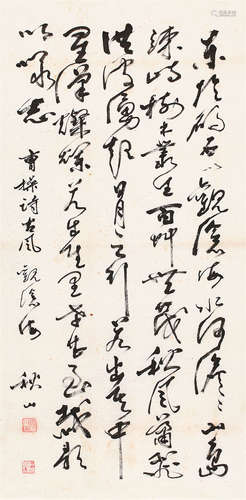 東臨碣石以觀滄海水何澹澹山島
竦峙樹木叢生百艸豐茂秋風蕭瑟
洪波湧起日月之行若出其中
星漢燦爛若出其里幸甚至哉歌
以詠志
曹操詩古風 觀滄海
秋山